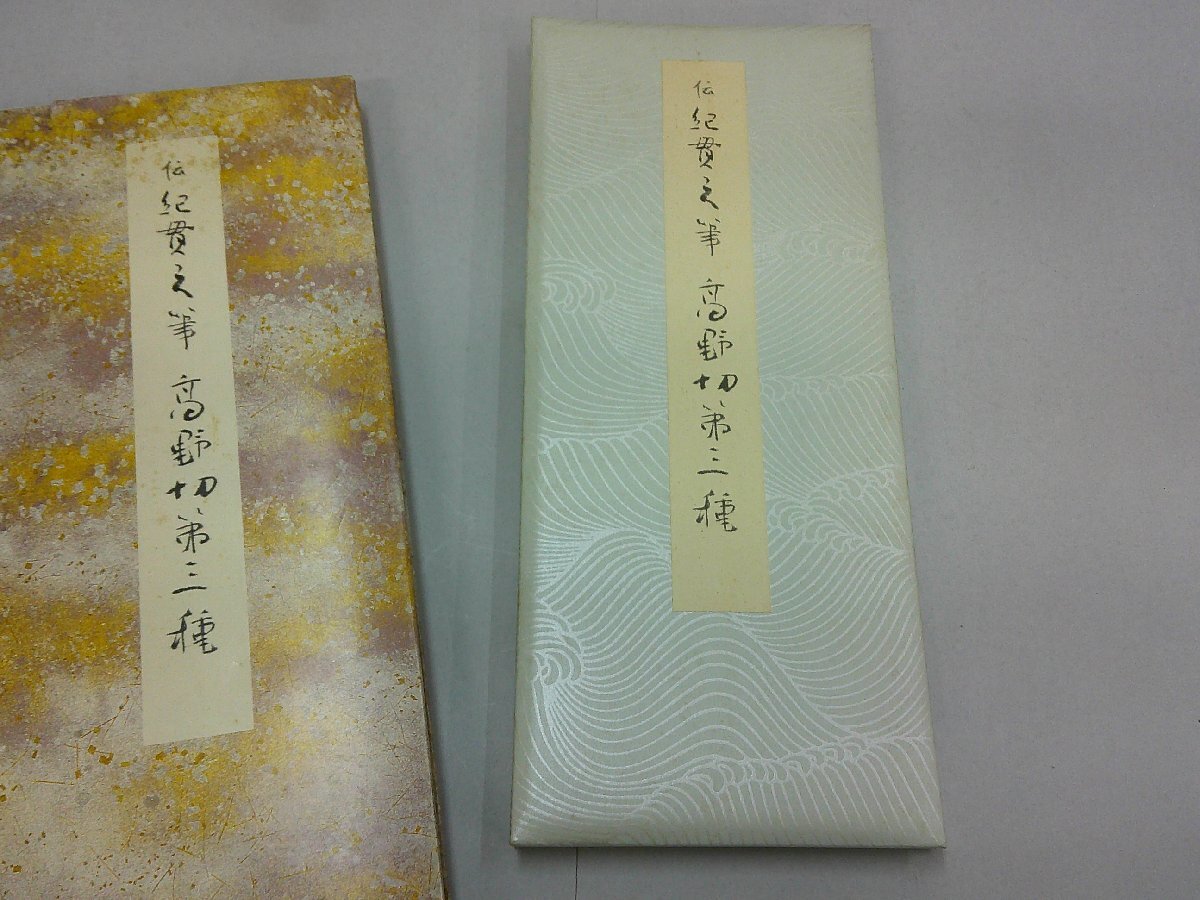 伝紀貫之筆 高野切第三種
伝紀貫之筆 高野切第三種